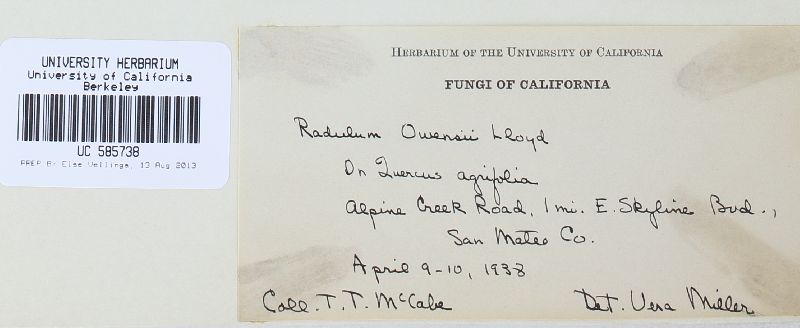 UNIVERSITY HERBARIUM
University of California
Berkeley
UC 585738
PREP BY Else Vellinga, 13 Aug 2013
HERBARIUM OF THE UNIVERSITY OF CALIFORNIA
FUNGI OF CALIFORNIA
Radulum Owensii Lloyd
On Quercus agrifolia
Alpine Creek Road, 1 mi. E. Skyline Bvd.,
San Mateo Co.
April 9-10, 1938
Coll. T. T. McCabe
Det. Vera Miller